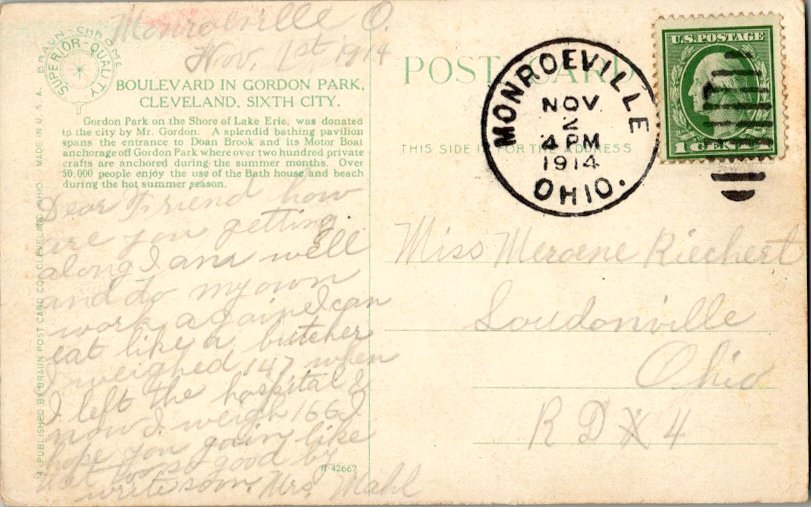 Monroeville O.
Nov. 1st 1914
BRAUN-CHROME
SUPERIOR-QUALITY
MADE IN U.S.A.
BOULEVARD IN GORDON PARK,
CLEVELAND, SIXTH CITY.
Gordon Park on the Shore of Lake Erie, was donated
to the city by Mr. Gordon. A splendid bathing pavilion
spans the entrance to Doan Brook and its Motor Boat
anchorage off Gordon Park where over two hundred private
crafts are anchored during the summer months. Over
50,000 people enjoy the use of the Bath house and beach
during the hot summer season.
Dear Friend how
are you getting
along I am well
and do my own
work again I can
eat like a butcher
I weighed 147 when
I left the hospital &
now I weigh 166 I
hope you gain like
that too so good by
write soon. Mrs Mahl
PUBLISHED BY BRAUN POST CARD CO., CLEVELAND, OHIO.
R-42667
POST CARD
THIS SIDE IS FOR THE ADDRESS
MONROEVILLE
NOV
2
4 PM
1914
OHIO.
U.S. POSTAGE
1 CENT 1
Miss Meroene Riechert
Loudonville
Ohio
R D X 4